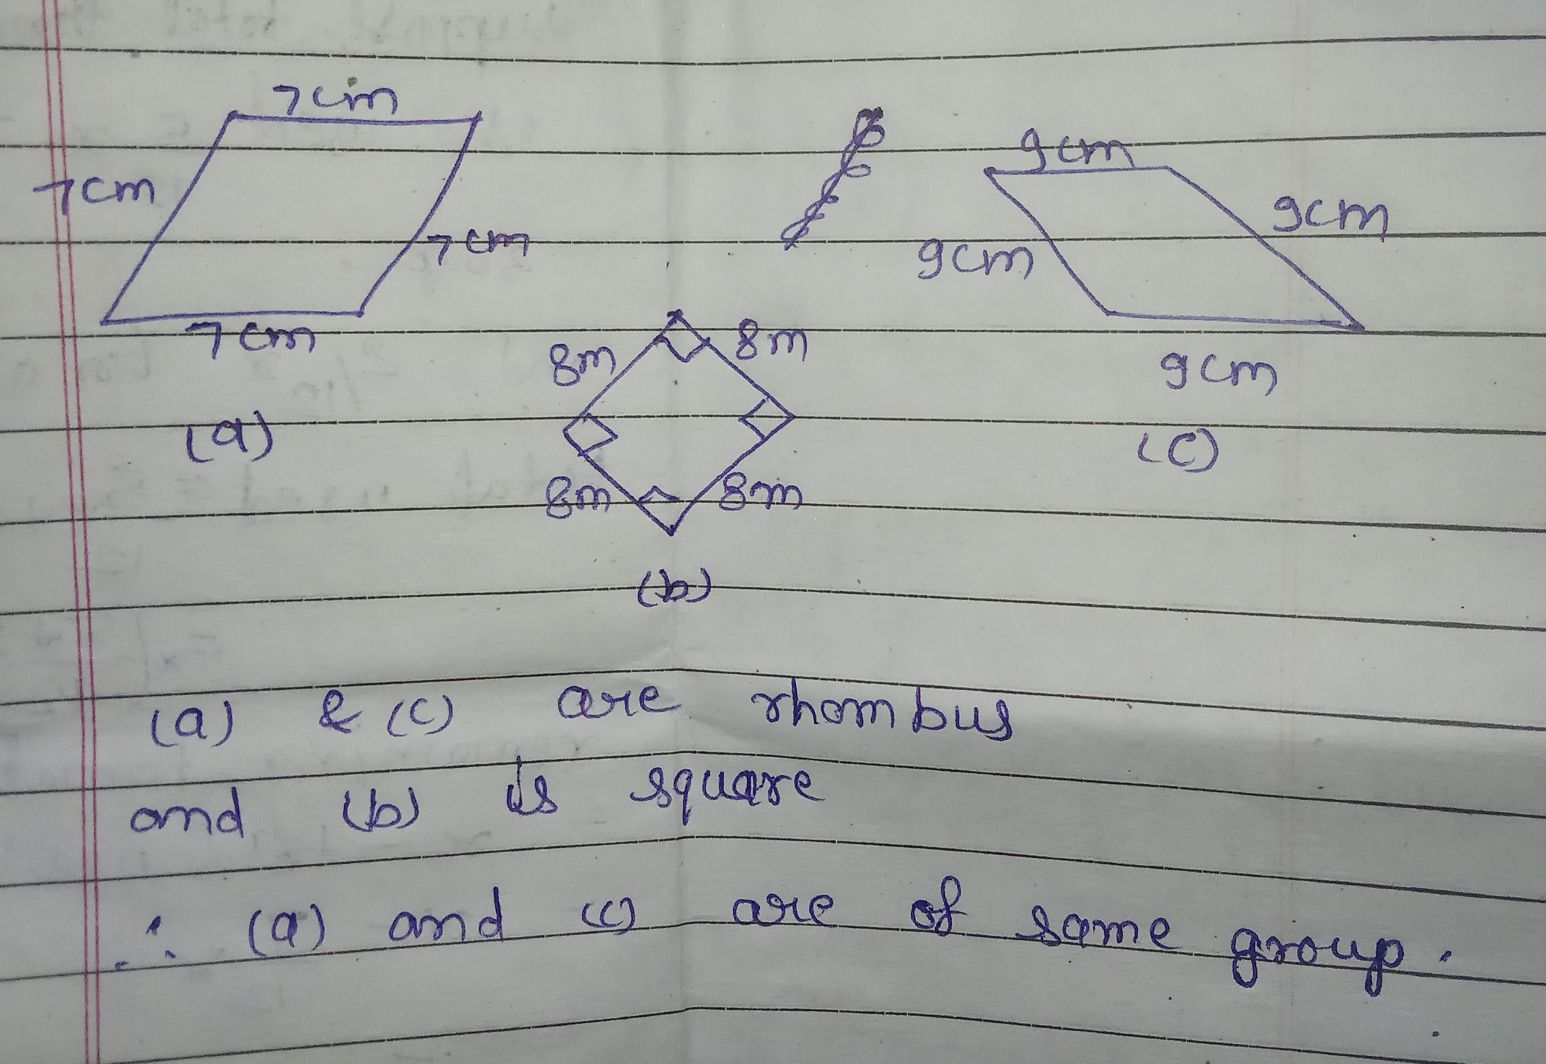 7cm
7cm
7cm
7cm
(a)
8m 8m
8m 8m
(b)
9cm
9cm
9cm
9cm
(c)
(a) & (c) are rhombus
and (b) is square
∴ (a) and (c) are of same group.